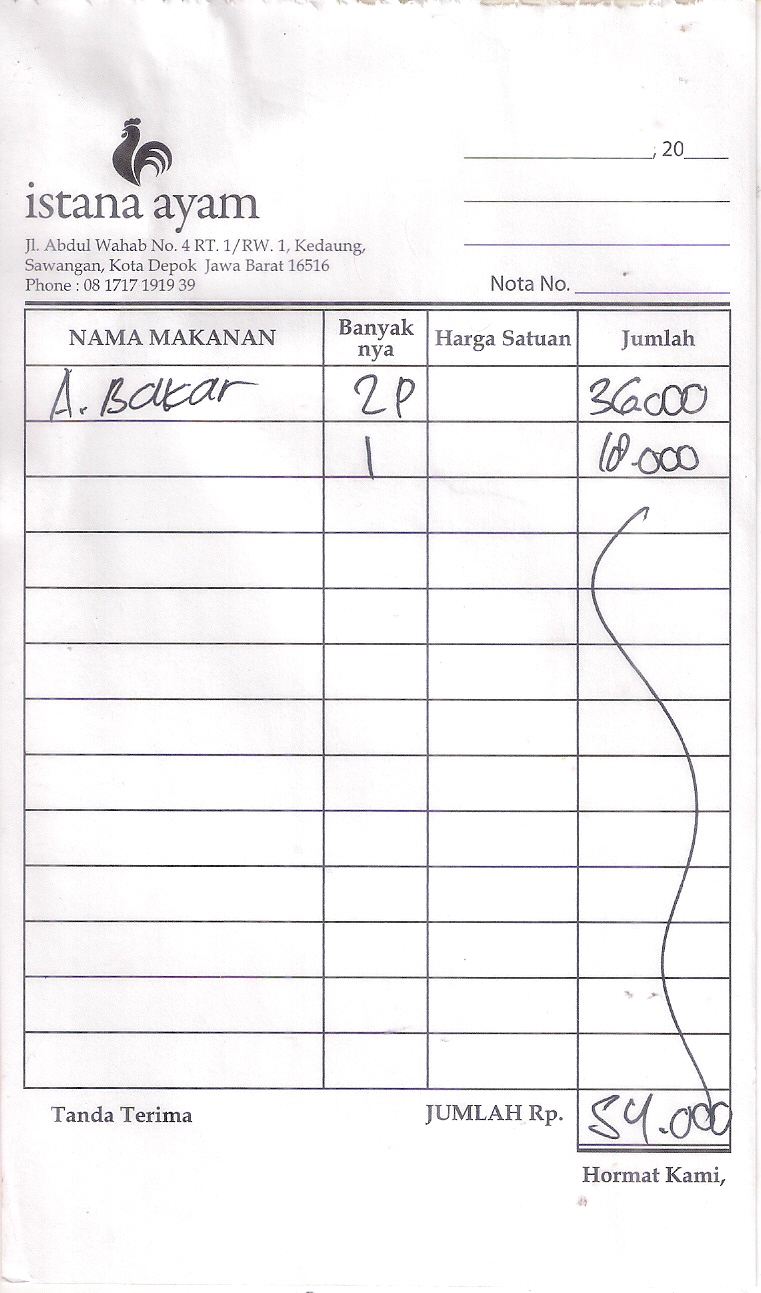 , 20
istana ayam
Jl. Abdul Wahab No. 4 RT. 1/RW. 1, Kedaung,
Sawangan, Kota Depok Jawa Barat 16516
Phone : 08 1717 1919 39
Nota No.
NAMA MAKANAN Banyak nya Harga Satuan Jumlah
A. Bakar 2 P 36.000
1 18.000
Tanda Terima JUMLAH Rp. 54.000
Hormat Kami,